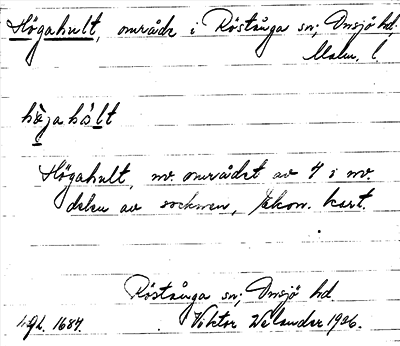 Högahult, område i Röstånga sn; Onsjö hd;
Malm. l.
hö̀ja hú̀lt
Högahult, nv. området av 4 i nv.
delen av socknen, Ekon. kart.
Röstånga sn; Onsjö hd
Lgl. 1684. Viktor Welander 1936.